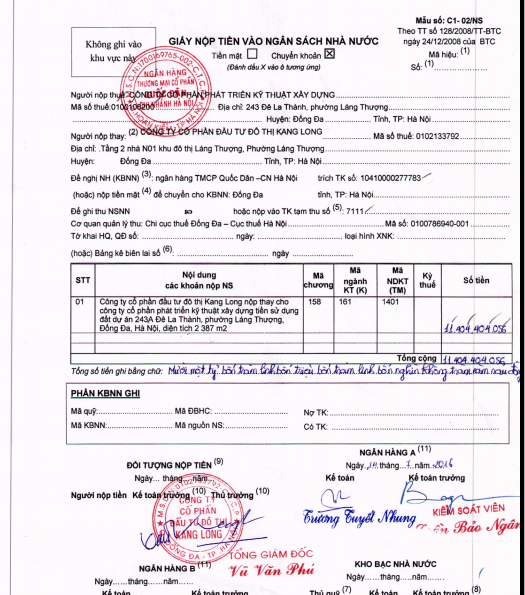 Mẫu số: C1- 02/NS
Theo TT số 128/2008/TT-BTC
ngày 24/12/2008 của BTC
Không ghi vào
khu vực này
GIẤY NỘP TIỀN VÀO NGÂN SÁCH NHÀ NƯỚC
Tiền mặt ☐ Chuyển khoản ☒
(Đánh dấu X vào ô tương ứng)
Mã hiệu: (1)
Số: (1)
NGÂN HÀNG
THƯƠNG MẠI CỔ PHẦN
QUỐC DÂN
CHI NHÁNH HÀ NỘI
Người nộp thuế: CÔNG TY CỔ PHẦN PHÁT TRIỂN KỸ THUẬT XÂY DỰNG
Mã số thuế: 0100106200 Địa chỉ: 243 Đê La Thành, phường Láng Thượng
Huyện: Đống Đa Tỉnh, TP: Hà Nội
Người nộp thay: (2) CÔNG TY CỔ PHẦN ĐẦU TƯ ĐÔ THỊ KANG LONG Mã số thuế: 0102133792
Địa chỉ: .Tầng 2 nhà N01 khu đô thị Láng Thượng, Phường Láng Thượng
Huyện: Đống Đa Tỉnh, TP: Hà Nội
Đề nghị NH (KBNN) (3): ngân hàng TMCP Quốc Dân -CN Hà Nội trích TK số: 10410000277783
(hoặc) nộp tiền mặt (4) để chuyển cho KBNN: Đống Đa tỉnh, TP: Hà Nội
Để ghi thu NSNN hoặc nộp vào TK tạm thu số (5): 7111
Cơ quan quản lý thu: Chi cục thuế Đống Đa – Cục thuế Hà Nội Mã số: 0100786940-001
Tờ khai HQ, QĐ số: ngày: loại hình XNK:
(hoặc) Bảng kê biên lai số (6): ngày
STT Nội dung các khoản nộp NS Mã chương Mã ngành KT (K) Mã NDKT (TM) Kỳ thuế Số tiền
01 Công ty cổ phần đầu tư đô thị Kang Long nộp thay cho 158 161 1401
công ty cổ phần phát triển kỹ thuật xây dựng tiền sử dụng
đất dự án 243A Đê La Thành, phường Láng Thượng,
Đống Đa, Hà Nội, diện tích 2 387 m2 11.404.404.056
Tổng cộng 11.404.404.056
Tổng số tiền ghi bằng chữ: Mười một tỷ, bốn trăm linh bốn triệu, bốn trăm linh bốn nghìn không trăm năm sáu
PHẦN KBNN GHI
Mã quỹ: Mã ĐBHC: Nợ TK:
Mã KBNN: Mã nguồn NS: Có TK:
NGÂN HÀNG A (11)
ĐỐI TƯỢNG NỘP TIỀN (9) Ngày tháng năm 2016
Ngày... tháng... năm... Kế toán Kế toán trưởng
Người nộp tiền Kế toán trưởng (10) Thủ trưởng (10)
CÔNG TY
CỔ PHẦN
ĐẦU TƯ ĐÔ THỊ
KANG LONG
Trương Tuyết Nhung
KIỂM SOÁT VIÊN
Bảo Ngân
TỔNG GIÁM ĐỐC
NGÂN HÀNG B (11) Vũ Văn Phú KHO BẠC NHÀ NƯỚC
Ngày......tháng......năm...... Ngày......tháng......năm......
Kế toán Kế toán trưởng Thủ quỹ (7) Kế toán Kế toán trưởng (8)